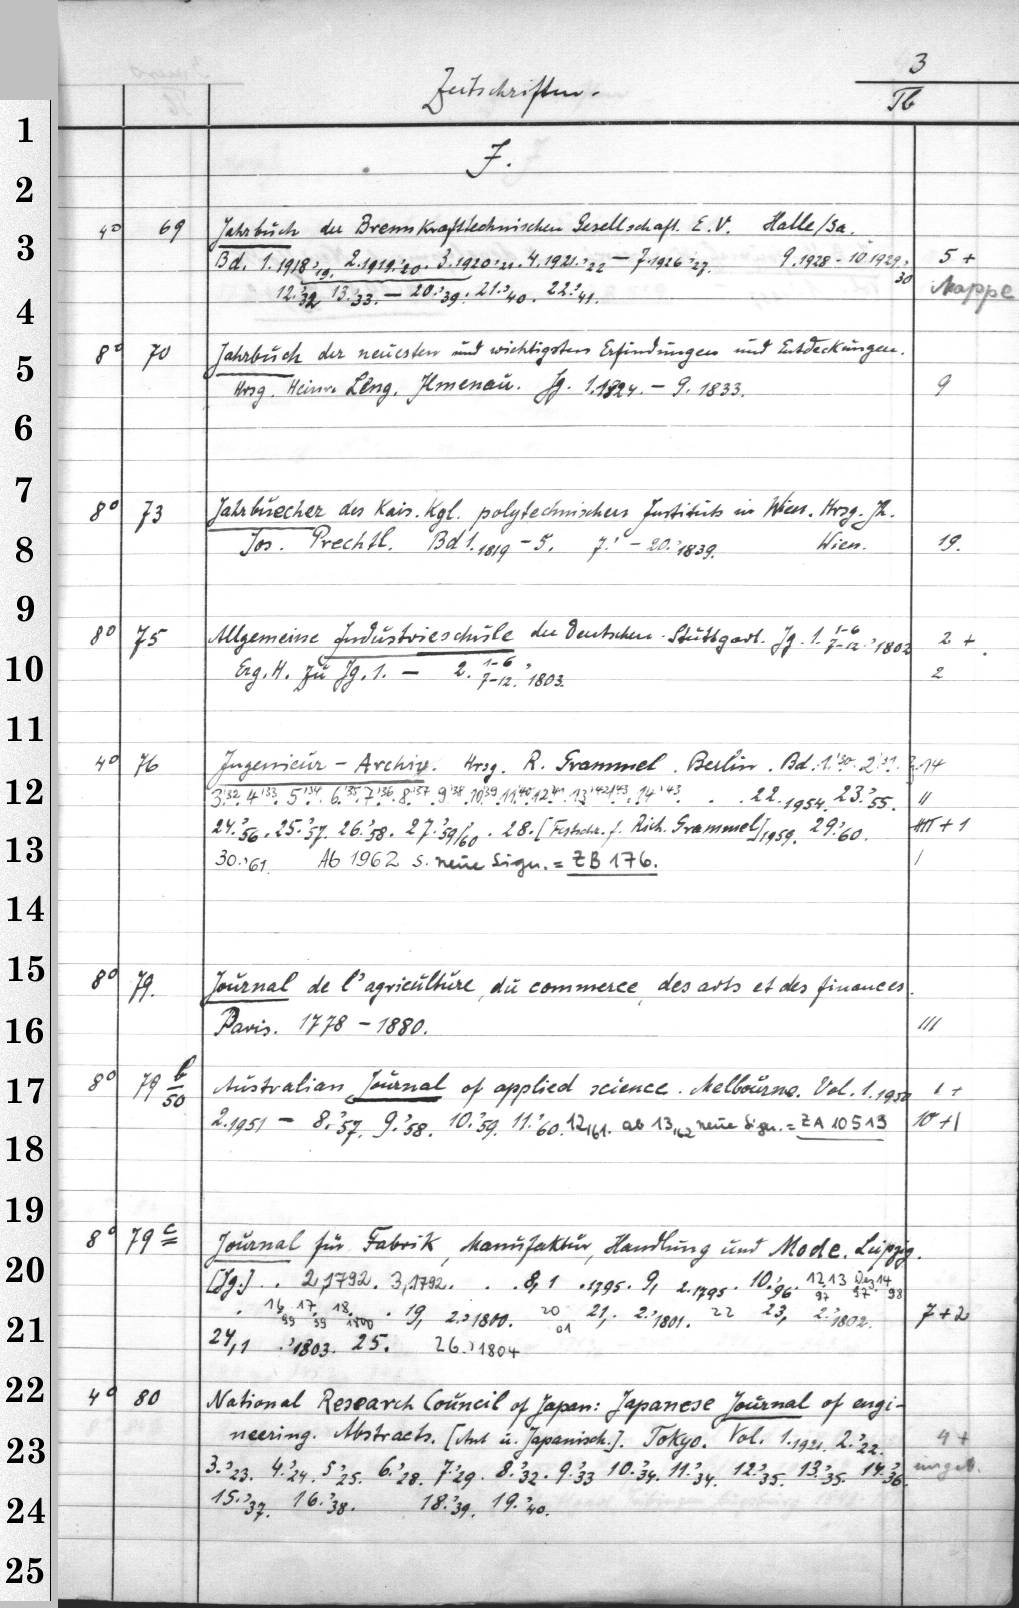 3
Zeitschriften.
Tb
J.
1
2
3
4
5
6
7
8
9
10
11
12
13
14
15
16
17
18
19
20
21
22
23
24
25
4° 69 Jahrbuch der Brennkrafttechnischen Gesellschaft. E.V. Halle/Sa.
Bd. 1.1918/19. 2.1919/20. 3.1920/21. 4.1921/22 — 7.1926/27. 9.1928 - 10.1929/30 5 +
12.'32 13.'33. — 20.'39. 21.'40. 22.'41. Mappe
8° 70 Jahrbuch der neuesten und wichtigsten Erfindungen und Entdeckungen.
Hrsg. Heinr. Leng. Ilmenau. Jg. 1.1824. — 9.1833. 9
8° 73 Jahrbuecher des Kais. Kgl. polytechnischen Instituts in Wien. Hrsg. Jh.
Jos. Prechtl. Bd 1.1819 – 5. 7.' – 20.'1839. Wien. 19.
8° 75 Allgemeine Industrieschule der Deutschen. Stuttgart. Jg. 1. 1-6 7-12.'1802 2 +
Erg. H. zu Jg. 1. — 2. 1-6 7-12.'1803. 2
4° 76 Ingenieur - Archiv. Hrsg. R. Grammel. Berlin. Bd. 1.'30. 2.'31. 14
3.'32. 4.'33. 5.'34. 6.'35. 7.'36. 8.'37. 9.'38. 10.'39. 11.'40. 12.'41. 13.'42/43. 14.'43. . . 22.1954. 23.'55. II
24.'56. 25.'57. 26.'58. 27.'59/60. 28. [Festschr. f. Rich. Grammel] 1959. 29.'60. + 1
30.'61. Ab 1962 s. neue Sign. = ZB 176. I
8° 79. Journal de l'agriculture, du commerce, des arts et des finances.
Paris. 1778 – 1880. III
8° 79 b/50 Australian Journal of applied science. Melbourne. Vol. 1.1950 1 +
2.1951 — 8.'57. 9.'58. 10.'59. 11.'60. 12,'61. ab 13,'62 neue Sign. = ZA 10513 10 + 1
8° 79 c Journal für Fabrik, Manufaktur, Handlung und Mode. Leipzig.
[Jg.] . 2,1792. 3,1792. . . 8,1 .1795. 9, 2.1795. 10.'96. 12,13 97 Dez. 97 14 98
. 16 99 17. 99 18. 1800 . 19, 2.'1800. 20 01 21,. 2.'1801. 22 23, 2.'1802. 7 + 2
24,1 .'1803. 25. 26.'1804
4° 80 National Research Council of Japan: Japanese Journal of engi-
neering. Abstracts. [Ant. u. Japanisch.]. Tokyo. Vol. 1.1921. 2.'22. 4 +
3.'23. 4.'24. 5.'25. 6.'28. 7.'29. 8.'32. 9.'33 10.'34. 11.'34. 12.'35. 13.'35. 14.'36. ungeb.
15.'37. 16.'38. 18.'39. 19.'40.